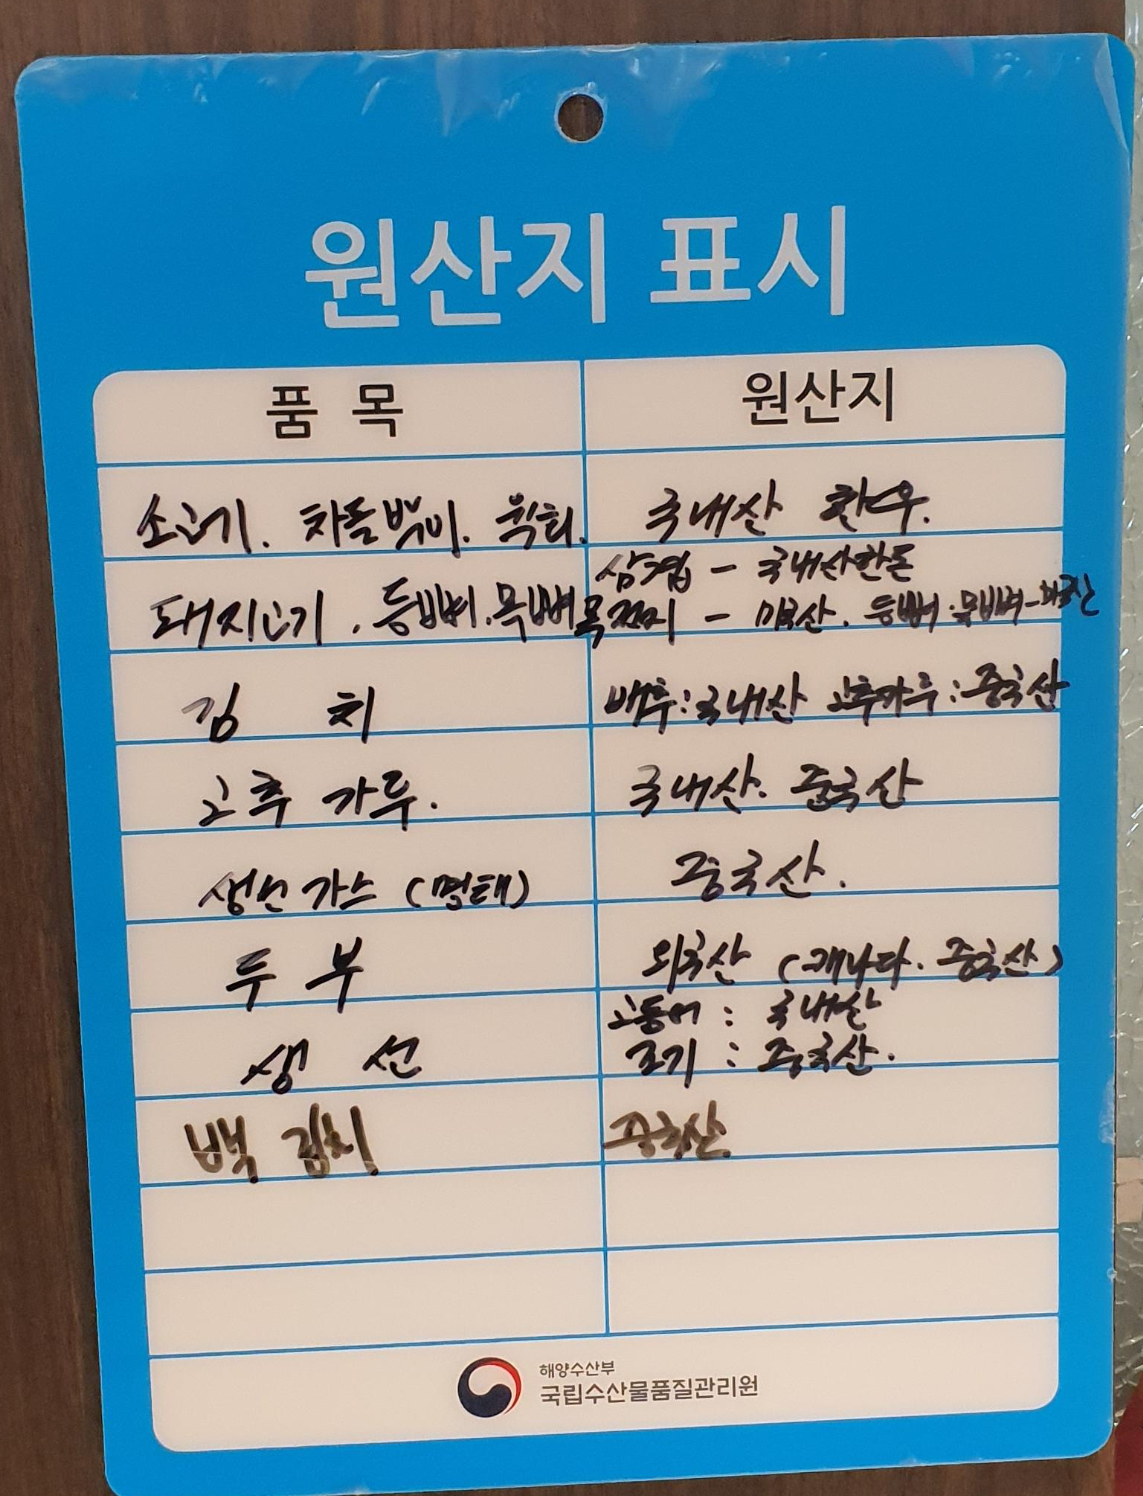 원산지 표시
품 목 원산지
소고기. 차돌백이. 육회. 국내산 한우.
삼겹 - 국내산한돈
돼지고기. 등뼈. 목뼈 목전지 - 미국산. 등뼈. 목뼈-미국산
김 치 배추:국내산 고추가루:중국산
고추 가루. 국내산. 중국산
생선 가스 (명태) 중국산.
두 부 외국산 (캐나다. 중국산)
고등어 : 국내산
생 선 조기 : 중국산.
백 김치 중국산.
해양수산부
국립수산물품질관리원